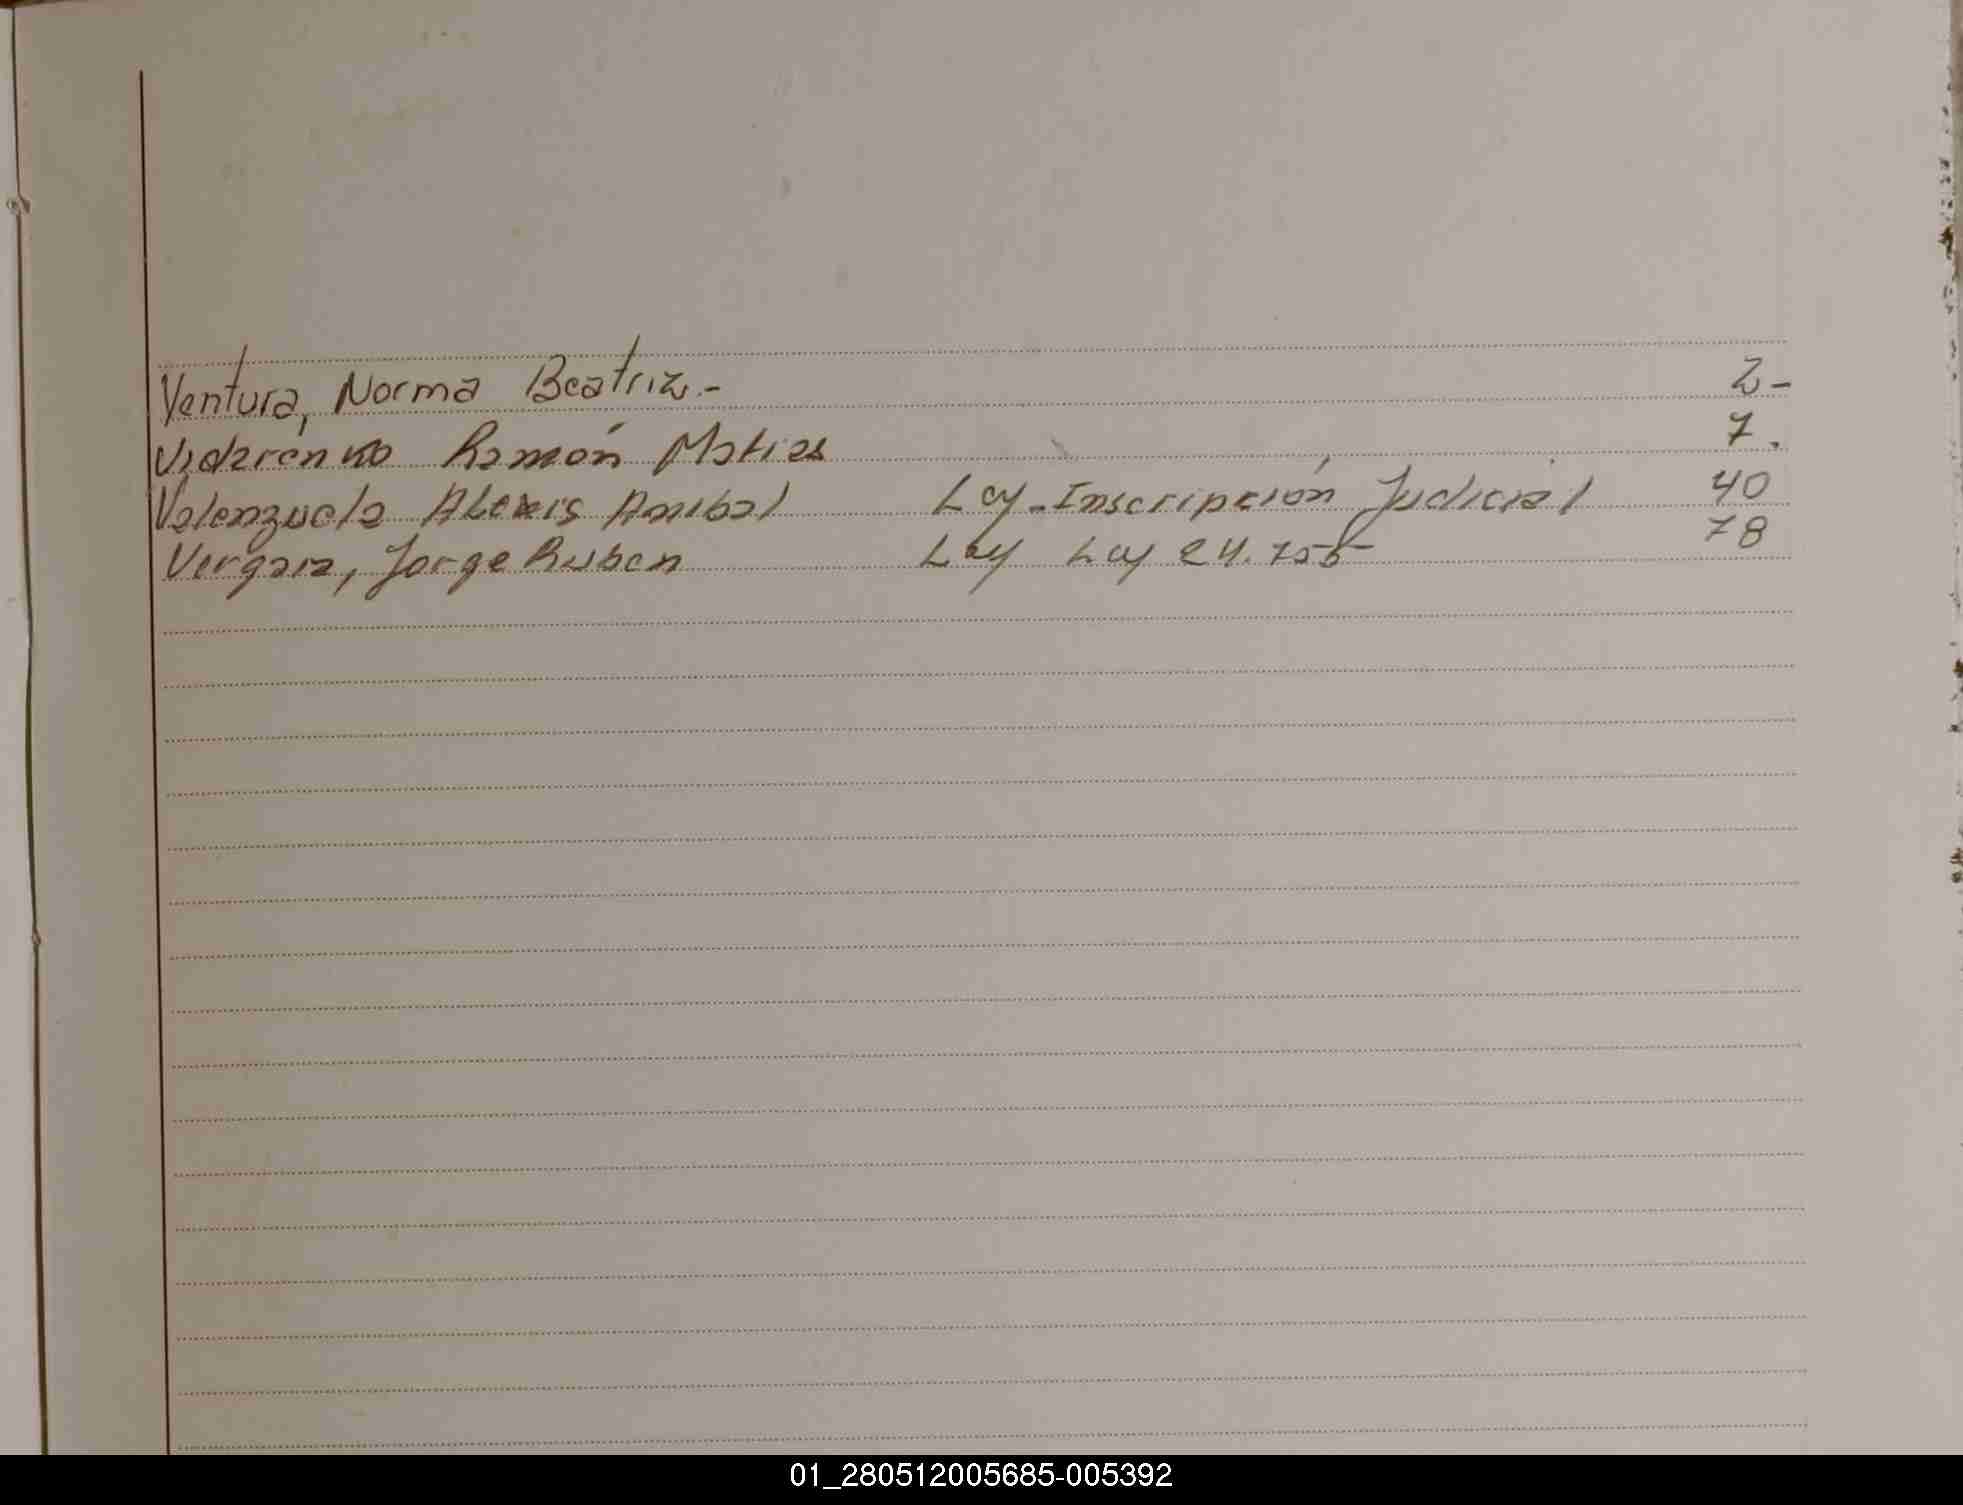 Ventura, Norma Beatriz.- 2-
Vidarenko Ramón Matias 7.
Valenzuela Alexis Anibal Ley-Inscripción Judicial 40
Vergara, Jorge Ruben Ley Ley 24.755 78
01_280512005685-005392